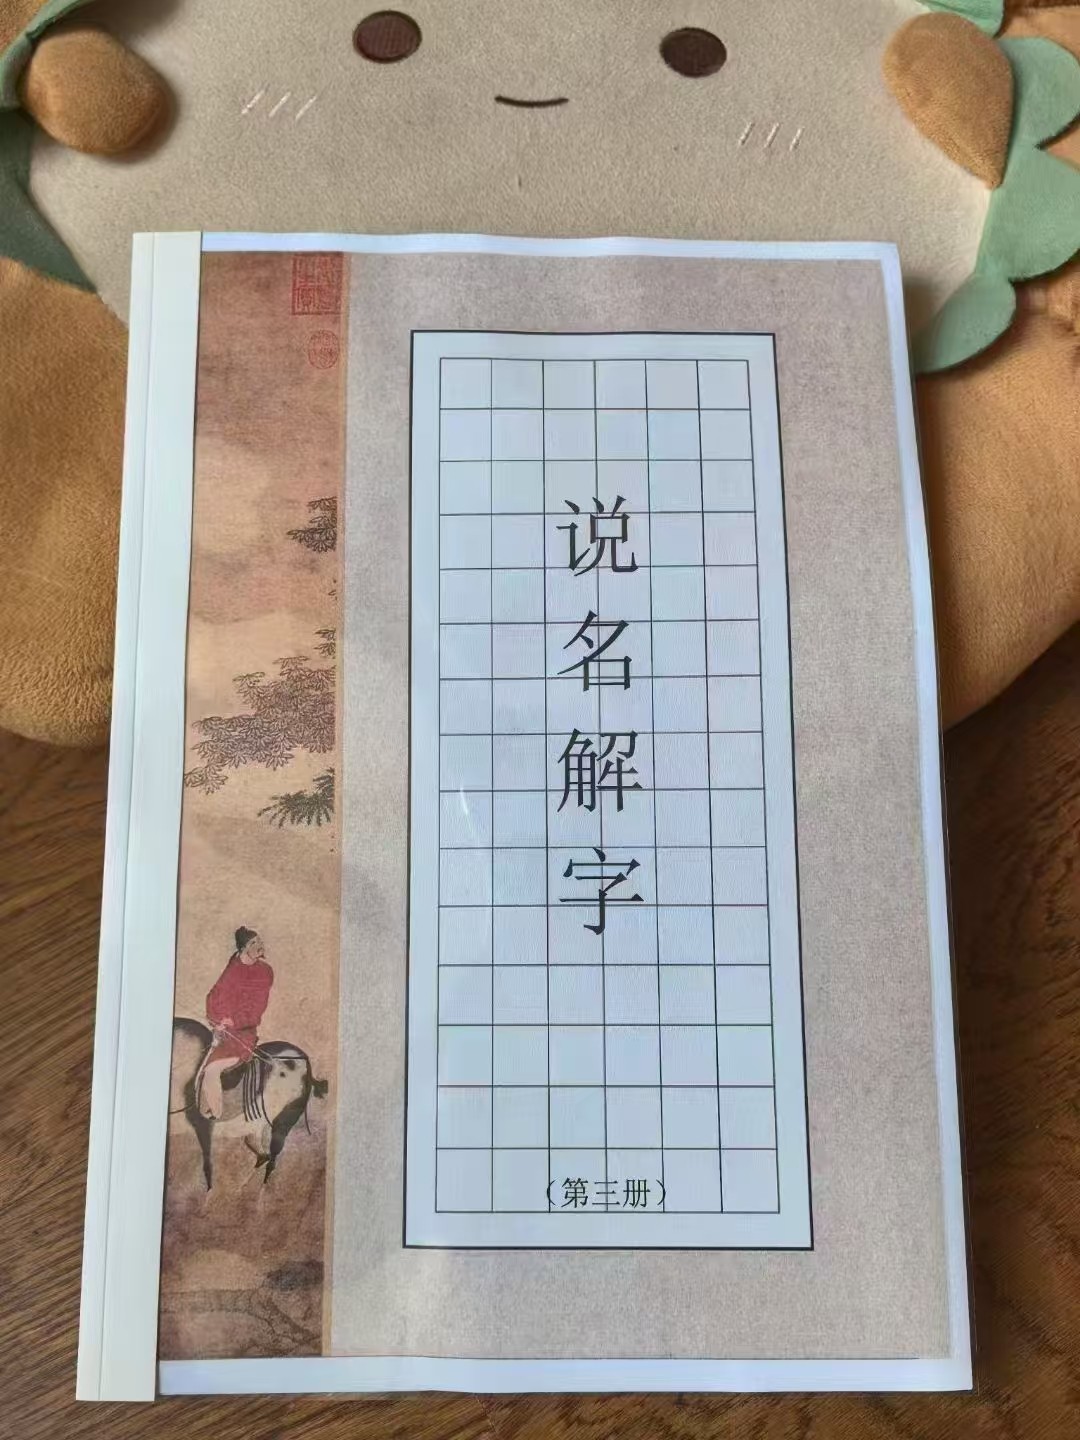 说名解字
（第三册）